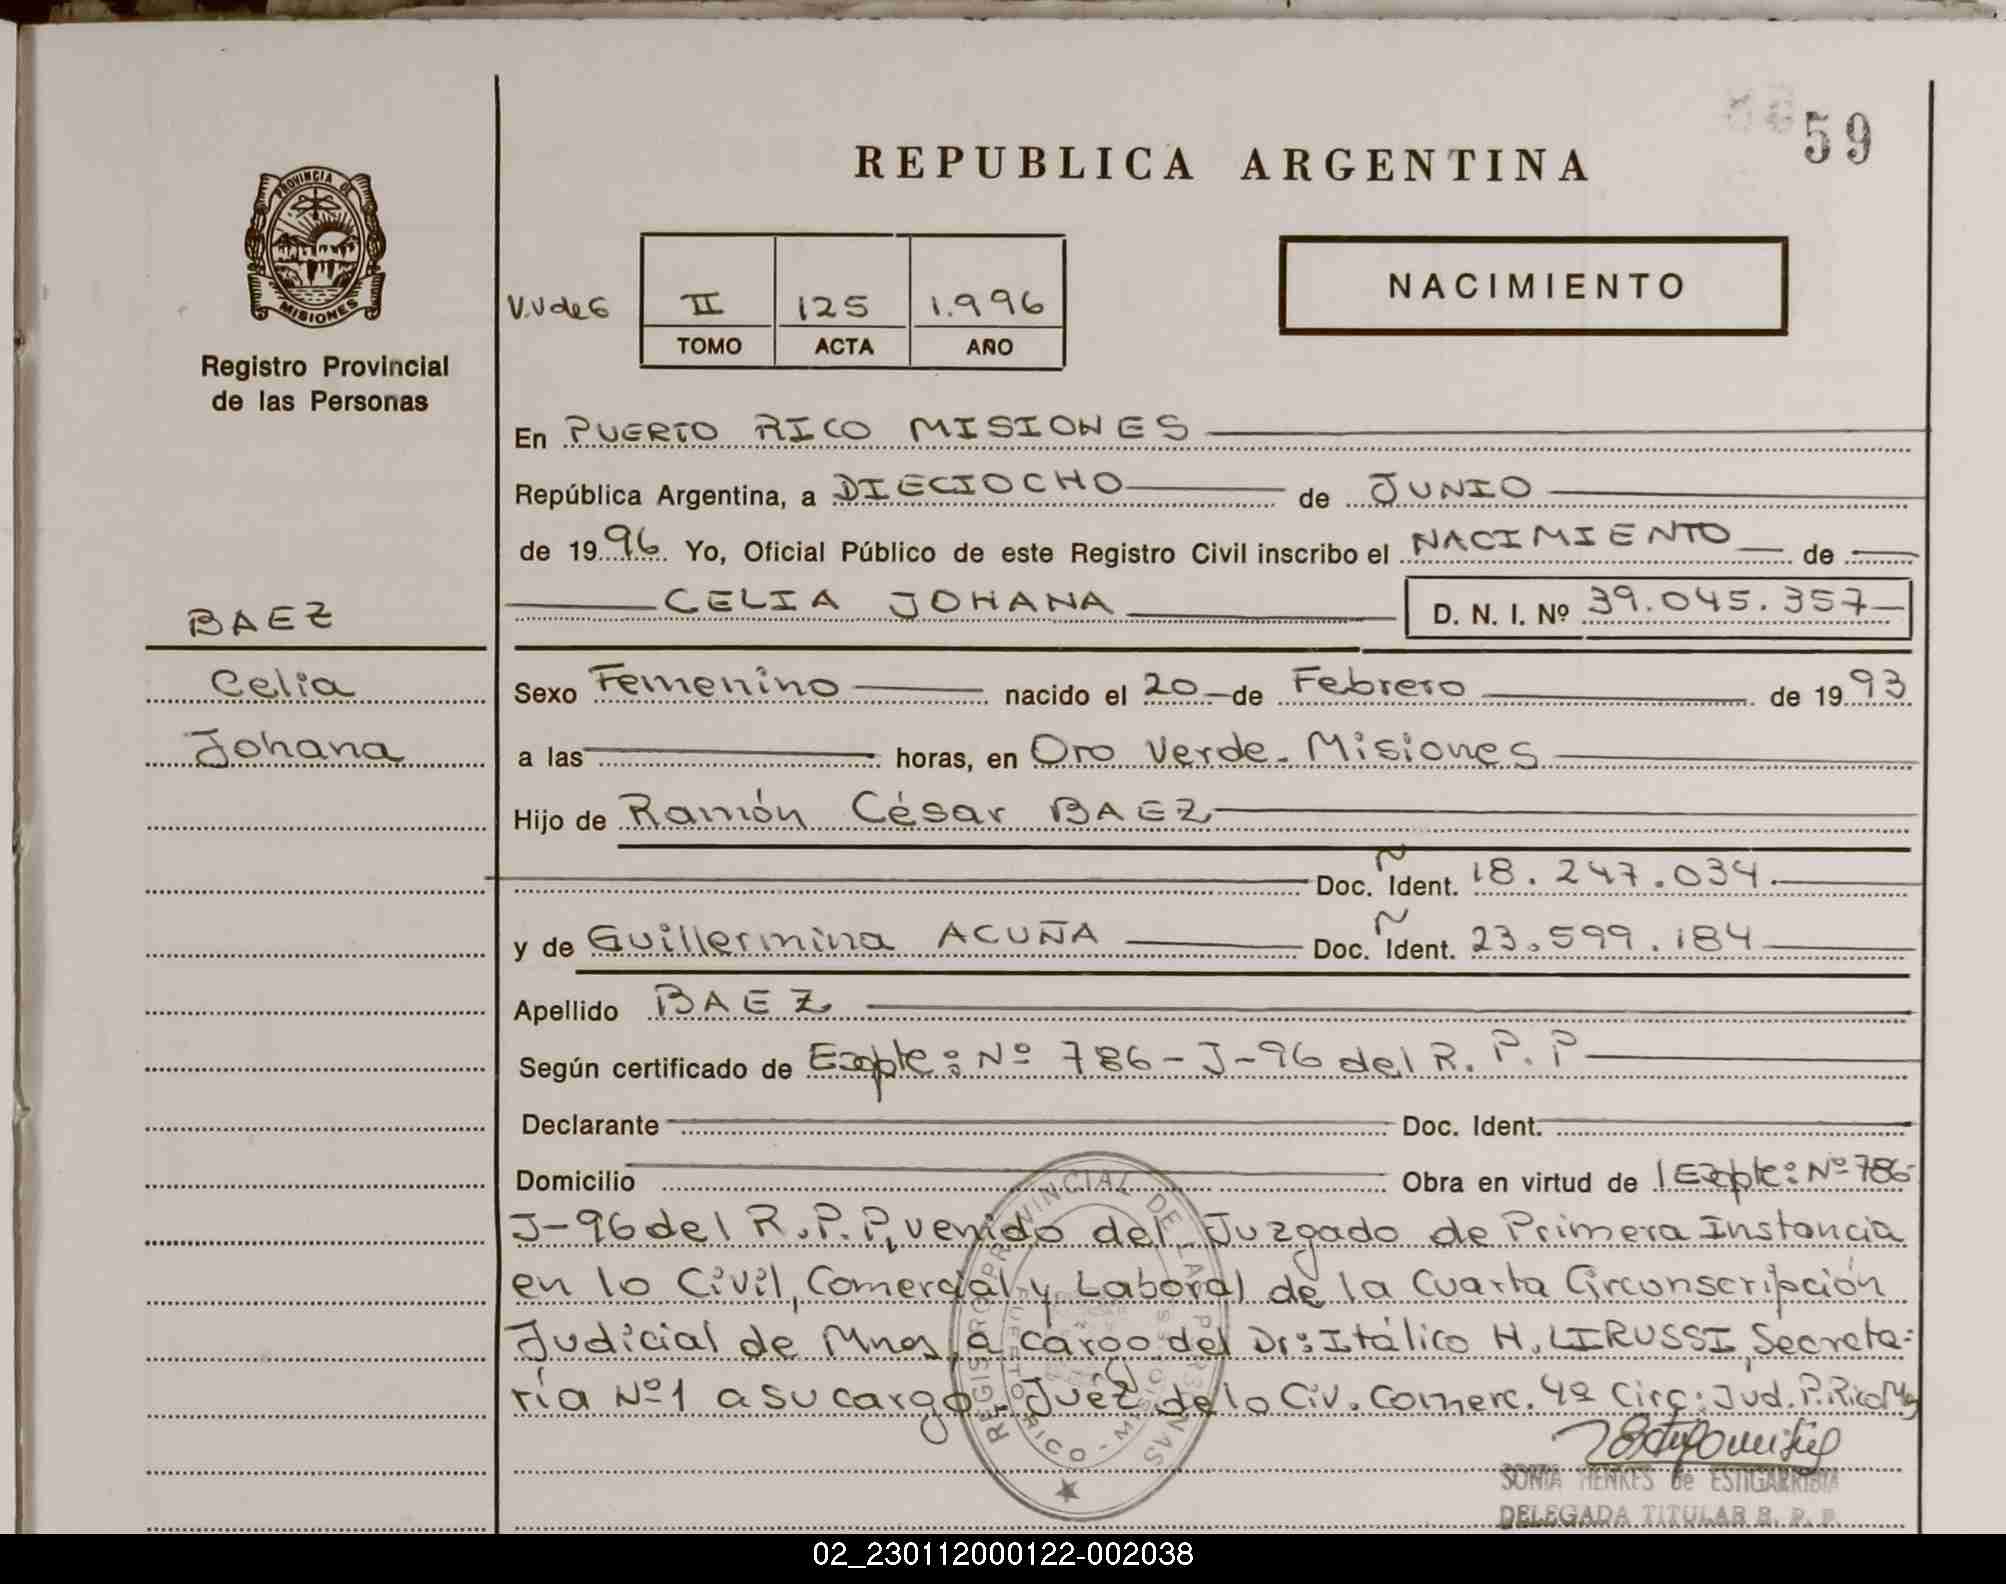 59
REPUBLICA ARGENTINA
PROVINCIA DE
MISIONES
Registro Provincial
de las Personas
V.V de 6
II 125 1.996
TOMO ACTA AÑO
NACIMIENTO
En PUERTO RICO MISIONES
República Argentina, a DIECIOCHO de JUNIO
de 1996 Yo, Oficial Público de este Registro Civil inscribo el NACIMIENTO de
BAEZ
CELIA JOHANA D. N. I. Nº 39.045.357
Celia
Sexo Femenino nacido el 20 de Febrero de 1993
Johana
a las horas, en Oro Verde - Misiones
Hijo de Ramón César BAEZ
Doc. Ident. 18.247.034
y de Guillermina ACUÑA Doc. Ident. 23.599.184
Apellido BAEZ
Según certificado de Expte: Nº 786-J-96 del R.P.P
Declarante Doc. Ident.
Domicilio Obra en virtud de Expte: Nº 786-
J-96 del R.P.P, venido del Juzgado de Primera Instancia
en lo Civil, Comercial y Laboral de la Cuarta Circunscripción
Judicial de Mnes, a cargo del Dr: Itálico H. LIRUSSI, Secreta-
ría Nº1 a su cargo. Juéz de lo Civ. Comerc. 4ª Circ: Jud. P. Rico Ms
REGISTRO PROVINCIAL DE LAS PERSONAS
PUERTO RICO - MISIONES
SONIA HENKES de ESTIGARRIBIA
DELEGADA TITULAR R. P. P.
02_230112000122-002038